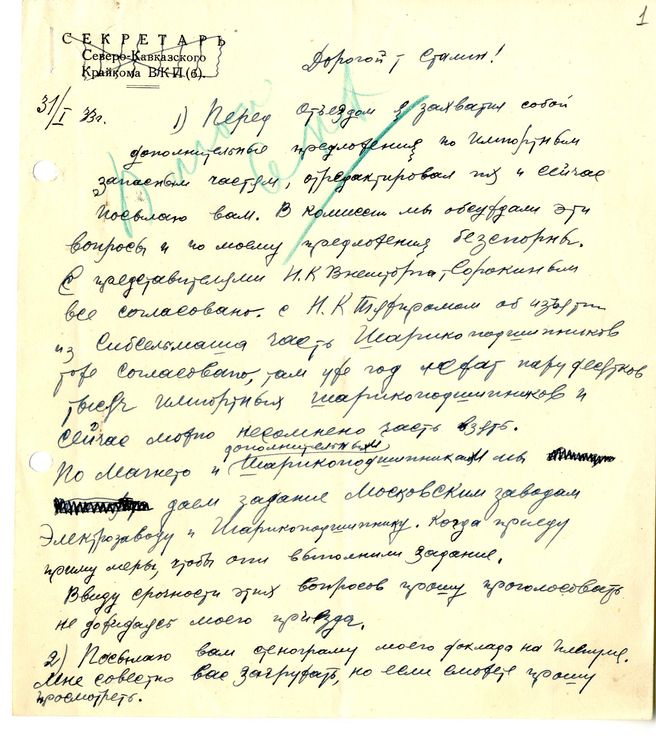 1
СЕКРЕТАРЬ
Северо-Кавказского
Крайкома ВКП(б).
Дорогой т Сталин!
31/I 33г.
1) Перед отъездом я захватил собой
дополнительные предложения по импортным
запасным частям, отредактировал их и сейчас
посылаю вам. В комиссии мы обсуждали эти
вопросы и по моему предложения безспорны.
С представителями Н.К Внешторга т. Сорокиным
все согласовано. с Н.К Тяжпромом об изъятии
из Сибсельмаша часть Шарикоподшипников
тоже согласовано, там уже год лежат пару десятков
тысяч импортных шарикоподшипников и
сейчас можно несомнено часть взять.
дополнительным
По Магнето и Шарикоподшипникам мы
даем задание Московским заводам
Электрозаводу и Шарикоподшипнику. Когда приеду
приму меры, чтобы они выполнили задание.
Ввиду срочности этих вопросов прошу проголосовать
не дожидаясь моего приезда.
2) Посылаю вам стенограму моего доклада на пленуме.
Мне совестно вас загружать, но если сможете прошу
просмотреть.